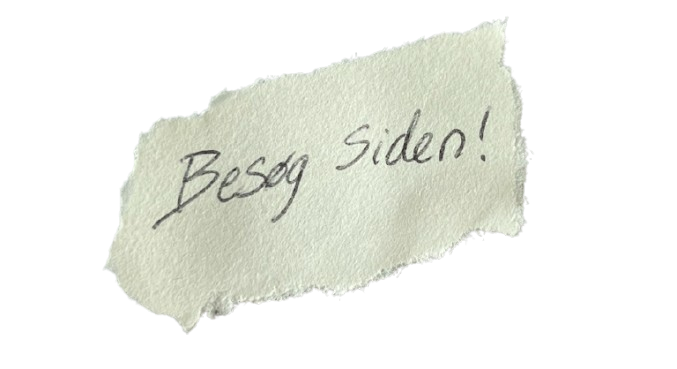 Besøg Siden!